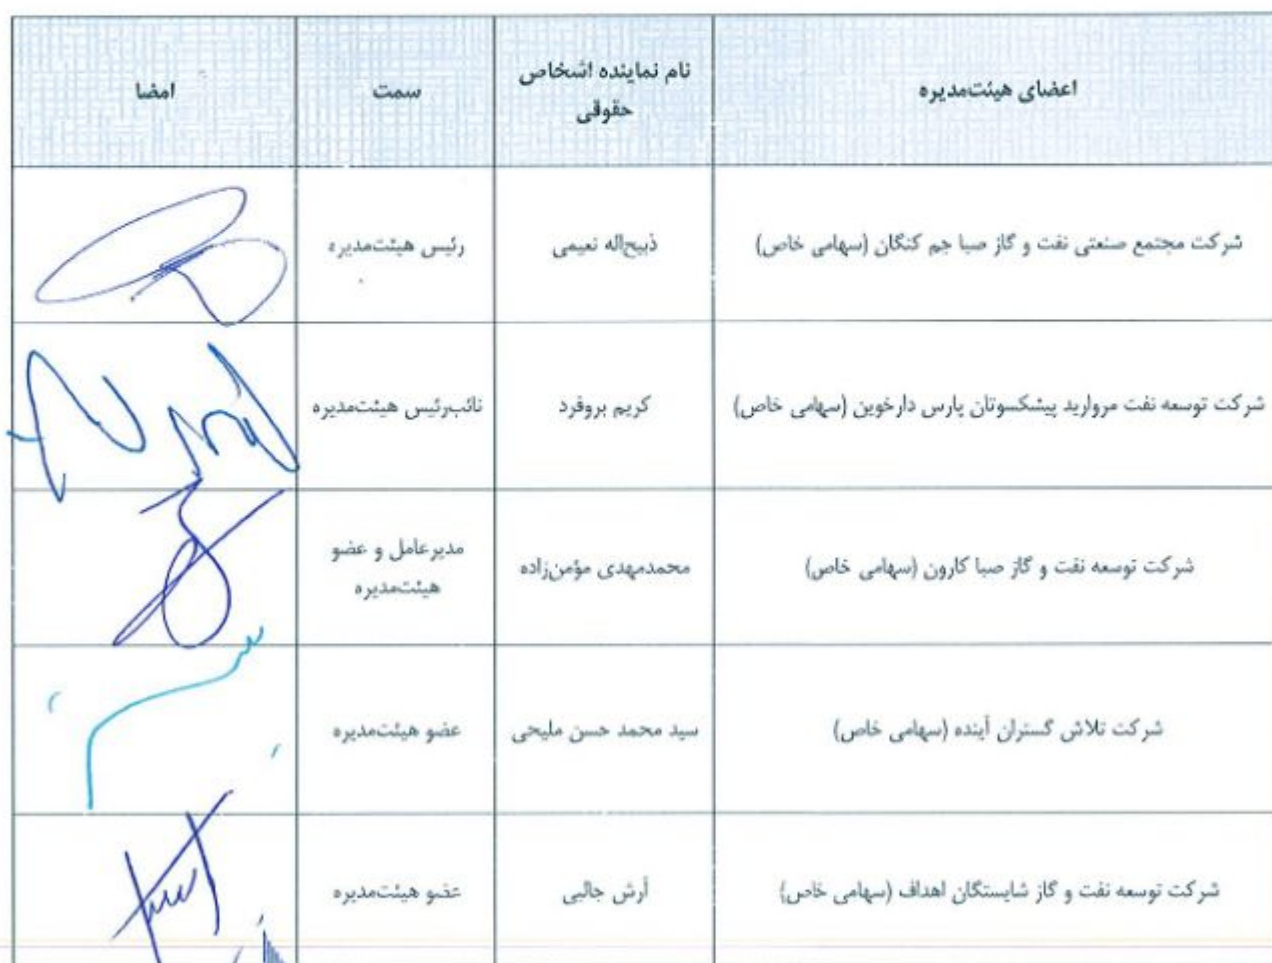 اعضای هیئت‌مدیره
نام نماینده اشخاص
حقوقی
سمت
امضا
شرکت مجتمع صنعتی نفت و گاز صبا جم کنگان (سهامی خاص)
ذبیح‌اله نعیمی
رئیس هیئت‌مدیره
شرکت توسعه نفت مروارید پیشکسوتان پارس دارخوین (سهامی خاص)
کریم بروفرد
نائب‌رئیس هیئت‌مدیره
شرکت توسعه نفت و گاز صبا کارون (سهامی خاص)
محمدمهدی مؤمن‌زاده
مدیرعامل و عضو
هیئت‌مدیره
شرکت تلاش گستران آینده (سهامی خاص)
سید محمد حسن ملیحی
عضو هیئت‌مدیره
شرکت توسعه نفت و گاز شایستگان اهداف (سهامی خاص)
آرش جالبی
عضو هیئت‌مدیره